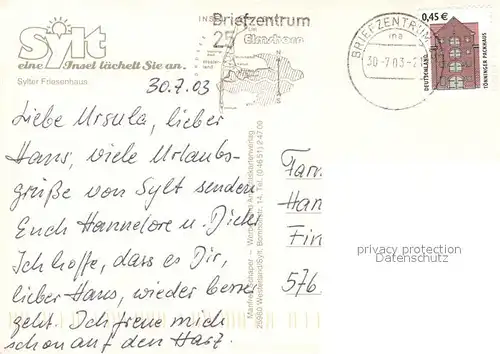 Sylt
eine Insel lächelt Sie an.
Sylter Friesenhaus
Briefzentrum
25
Elmshorn
BRIEFZENTRUM
30.-7.03-2
0,45 €
DEUTSCHLAND
TÖNNINGER PACKHAUS
30.7.03
Liebe Ursula, lieber
Hans, viele Urlaubs-
grüße von Sylt senden
Euch Hannelore u. Dieter
Ich hoffe, dass es Dir,
lieber Hans, wieder besser
geht. Ich freue mich
schon auf den Harz.
25980 Westerland/Sylt, 14, Tel. (04651) 24700
Fam
Han
Fin
576
privacy protection
Datenschutz